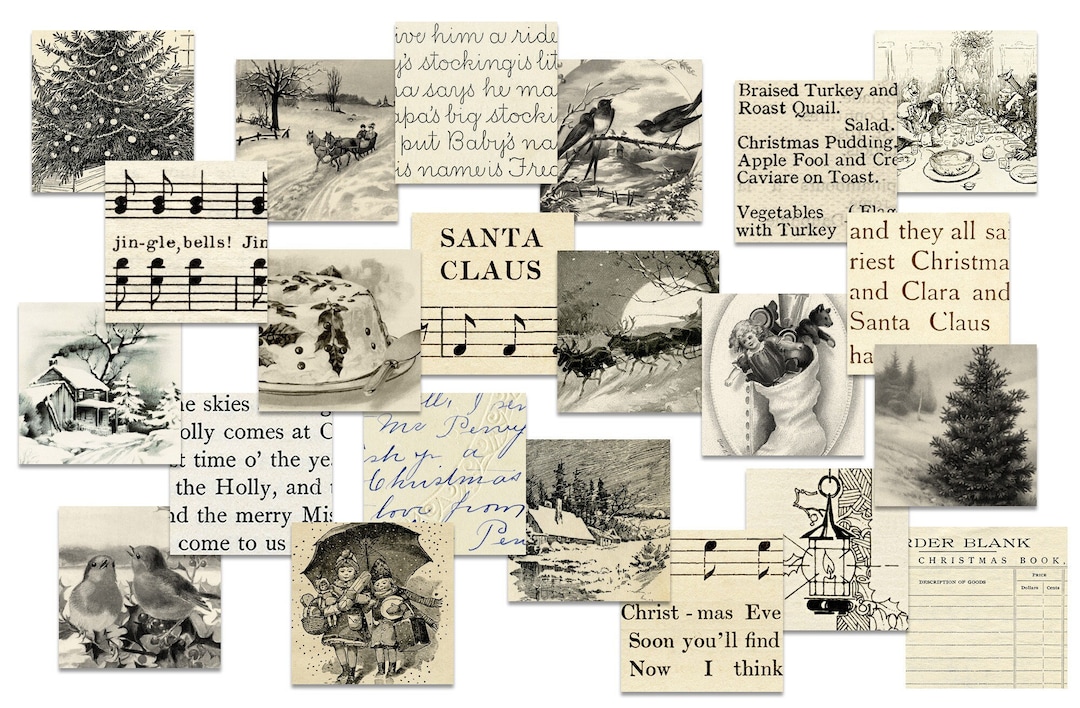 ive him a ride
y's stocking is lit
a says he ma
apa's big stocki
put Baby's na
is name is Fred
Braised Turkey and
Roast Quail.
Salad.
Christmas Pudding.
Apple Fool and Cre
Caviare on Toast.
Vegetables
with Turkey
jin-gle, bells! Jin
SANTA
CLAUS
and they all sa
riest Christma
and Clara and
Santa Claus
ha
he skies
olly comes at C
t time o' the yea
the Holly, and
nd the merry Mis
come to us
Mr Perry
sh y a
Christmas
love from
Per
Christ - mas Eve
Soon you'll find
Now I think
RDER BLANK
CHRISTMAS BOOK.
DESCRIPTION OF GOODS
PRICE
Dollars Cents